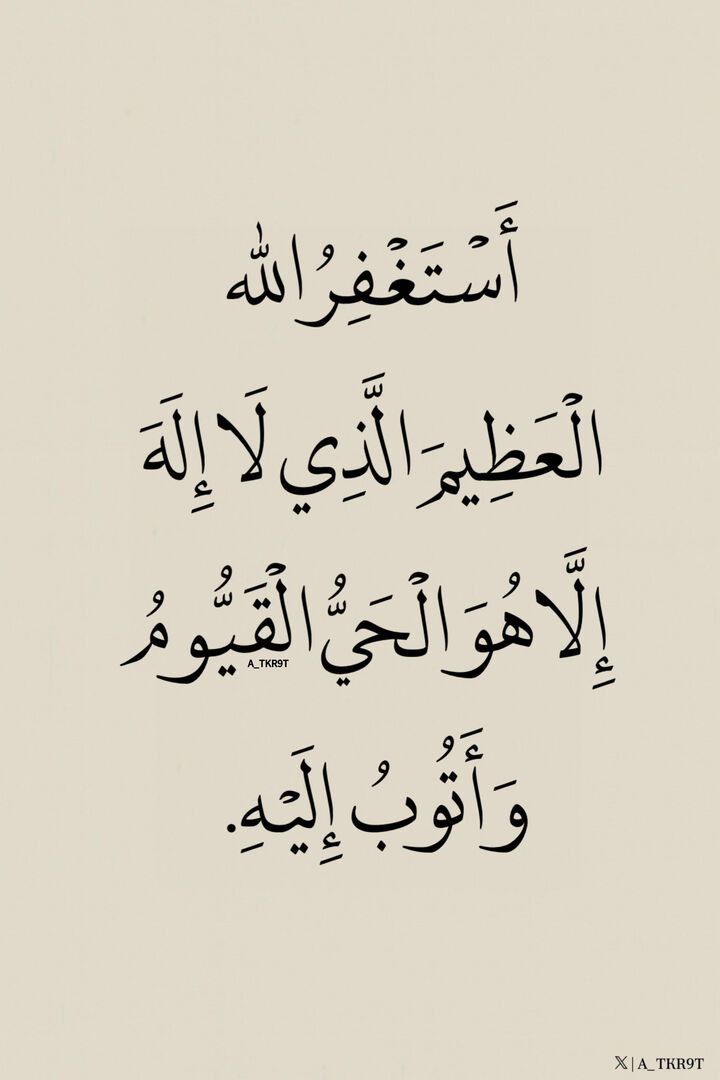 أَسْتَغْفِرُ الله
الْعَظِيمَ الَّذِي لَا إِلَهَ
إِلَّا هُوَ الْحَيُّ الْقَيُّومُ
A_TKR9T
وَأَتُوبُ إِلَيْهِ.
𝕏 | A_TKR9T